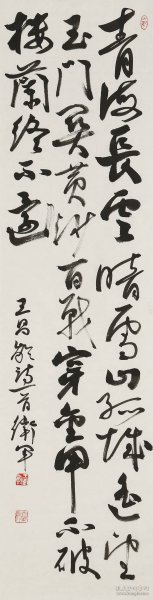 青海長雲暗雪山孤城遥望
玉門関黄沙百戰穿金甲不破
樓蘭終不還
王昌齡詩一首衛軍